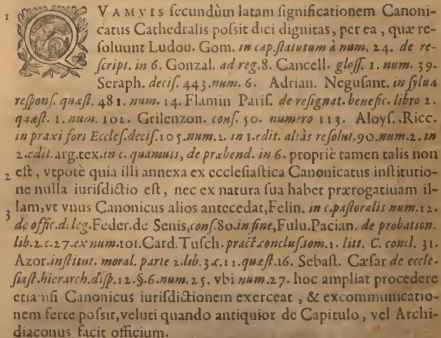 1 QVAMVIS secundùm latam significationem Canoni-
catus Cathedralis possit dici dignitas, per ea, quæ re-
soluunt Ludou. Gom. in cap. statutum à num. 24. de re-
script. in 6. Gonzal. ad reg. 8. Cancell. gloss. 1. num. 39.
Seraph. decis. 443. num. 6. Adrian. Negusant. in sylua
respons. quæst. 481. num. 14. Flamin Paris. de resignat. benefic. libro 2.
quæst. 1. num. 102. Grilenzon. cons. 50. numero 113. Aloys. Ricc.
in praxi fori Eccles. decis. 105. num. 2. in 1. edit. aliàs resolut. 90. num. 2. in
2. edit. arg. tex. in c. quamuis, de præbend. in 6. propriè tamen talis non
2 est, vtpotè quia illi annexa ex ecclesiastica Canonicatus institutio-
ne nulla iurisdictio est, nec ex natura sua habet prærogatiuam il-
3 lam, vt vnus Canonicus alios antecedat, Felin. in c. pastoralis num. 12.
de offic. deleg. Feder. de Senis, cons. 80. in fine, Fulu. Pacian. de probation.
lib. 2. c. 27. ex num. 101. Card. Tusch. pract. conclus. tom. 1. litt. C. concl. 31.
Azor. institut. moral. parte 2. lib. 3. c. 11. quæst. 16. Sebast. Cæsar de eccle-
siast. hierarch. disp. 12. §. 6. num. 25. vbi num. 27. hoc ampliat procedere
etiamsi Canonicus iurisdictionem exerceat, & excommunicatio-
nem ferre possit, veluti quando antiquior de Capitulo, vel Archi-
diaconus facit officium.